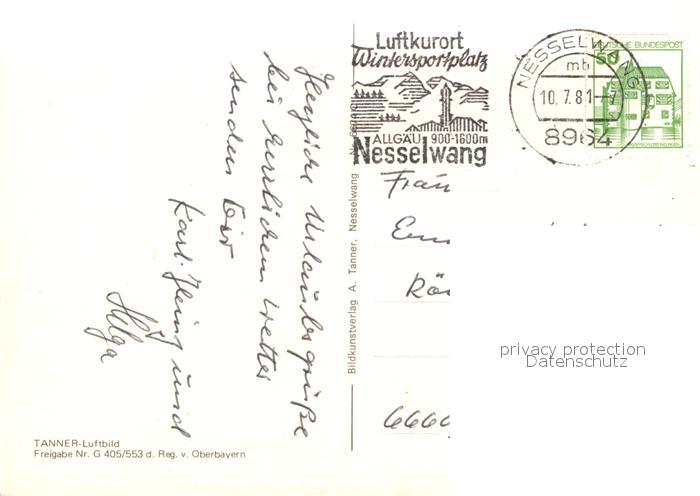 Herzliche Urlaubsgrüße
bei herrlichem Wetter
senden Dir
Karl-Heinz und
Helga
TANNER-Luftbild
Freigabe Nr. G 405/553 d. Reg. v. Oberbayern
Bildkunstverlag A. Tanner, Nesselwang
Luftkurort
Wintersportplatz
ALLGÄU 900-1600m
Nesselwang
NESSELWANG
mb
10.7.81-7
8964
DEUTSCHE BUNDESPOST
50
Frau
6660
privacy protection
Datenschutz